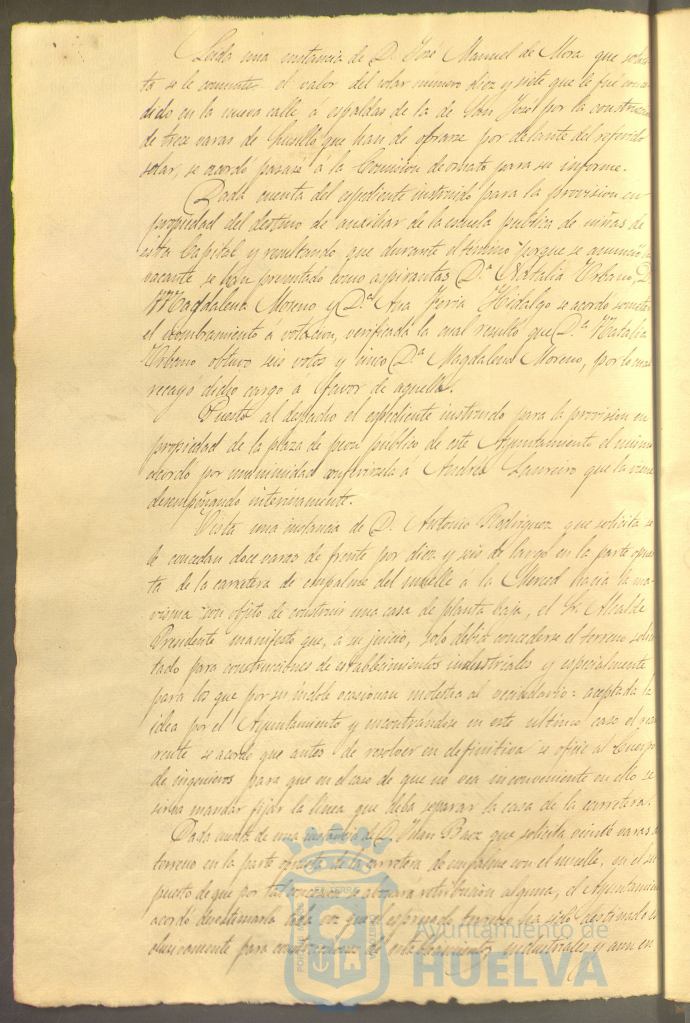 Leida una instancia de D. José Manuel de Mora que solici-
ta se le conmute el valor del solar número diez y siete que le fué conce-
dido en la nueva calle á espaldas de la de San José por la construcción
de trece varas de husillo que han de obrarse por delante del referido
solar, se acordó pasase á la Comision de ornato para su informe.
Dada cuenta del espediente instruido para la provision en
propiedad del destino de auxiliar de la escuela publica de niñas de
esta Capital y resultando que durante el termino porque se anunció la
vacante se han presentado como aspirantas D.ª Natalia Urbano, D.ª
Magdalena Moreno y D.ª Ana Hidalgo se acordo someter
el nombramiento á votacion, verificada la cual resultó que D.ª Natalia
Urbano obtuvo seis votos y cinco D.ª Magdalena Moreno, por lo cual
recayó dicho cargo a favor de aquella.
Puesto al despacho el espediente instruido para la provision en
propiedad de la plaza de peon publico de este Ayuntamiento el mismo
acordó por unanimidad conferirsela a Andrés Laureiro que la viene
desempeñando interinamente.
Vista una instancia de D. Antonio Rodriguez que solicita se
le concedan doce varas de frente por diez y seis de largo en la parte opues-
ta de la carretera de empalme del muelle a la Merced hacia la ma-
risma con objeto de construir una casa de planta baja, el Sr. Alcalde
Presidente manifestó que, a su juicio, solo debia concederse el terreno solici-
tado para construcciones de establecimientos industriales y especialmente
para los que por su indole ocasionan molestia al vecindario: aceptada la
idea por el Ayuntamiento y encontrándose en este ultimo caso el recu-
rrente se acordó que antes de resolver en definitiva se oficie al Cuerpo
de ingenieros para que en el caso de que no vea inconveniente en ello se
sirva mandar fijar la linea que deba separar la casa de la carretera.
Dada cuenta de una instancia de D. Juan Baez que solicita veinte varas de
terreno en la parte opuesta de la carretera de empalme con el muelle, en el su-
puesto de que por tal concesion se abonara retribucion alguna, el Ayuntamiento
acordó desestimarla toda vez que el espresado terreno ha sido destinado es-
clusivamente para construcciones de establecimientos industriales y aun en
Ayuntamiento de
HUELVA